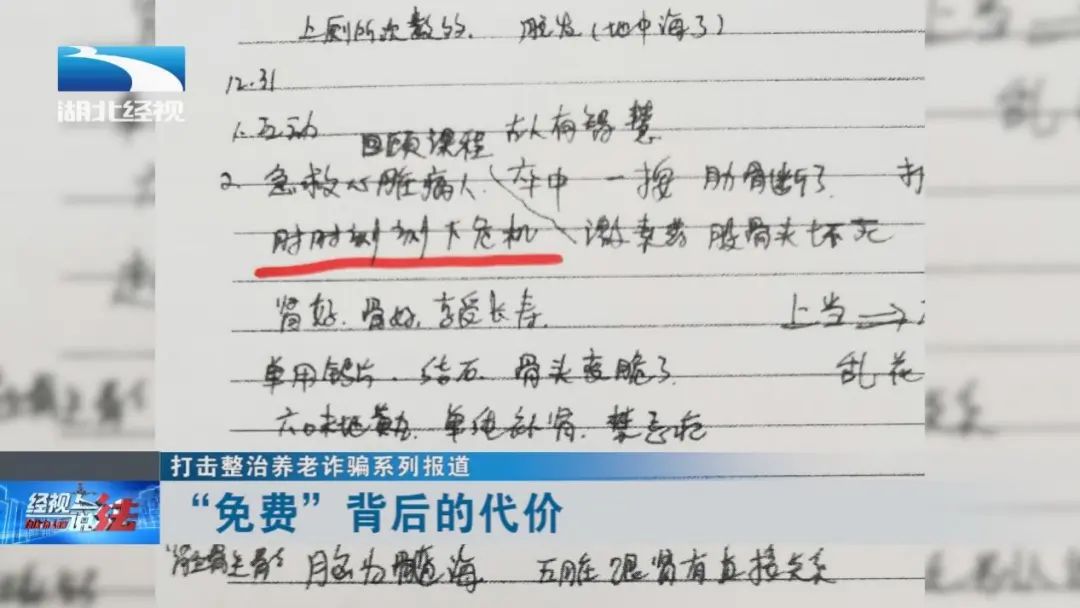 上厕所次数多、 脱发(地中海了)
湖北经视
12.31
1. 互动 回顾课程 古人有智慧
2. 急救心脏病人、卒中 一按 肋骨断了 打
时时刻刻下危机 激素药 股骨头坏死
肾好、骨好、享受长寿、
上当
单用钙片、结石、骨头变脆了
乱花
六味地黄 单纯补肾、禁忌
打击整治养老诈骗系列报道
经视 法
“免费”背后的代价
肾主骨
脑为髓海 五脏跟肾有直接关系